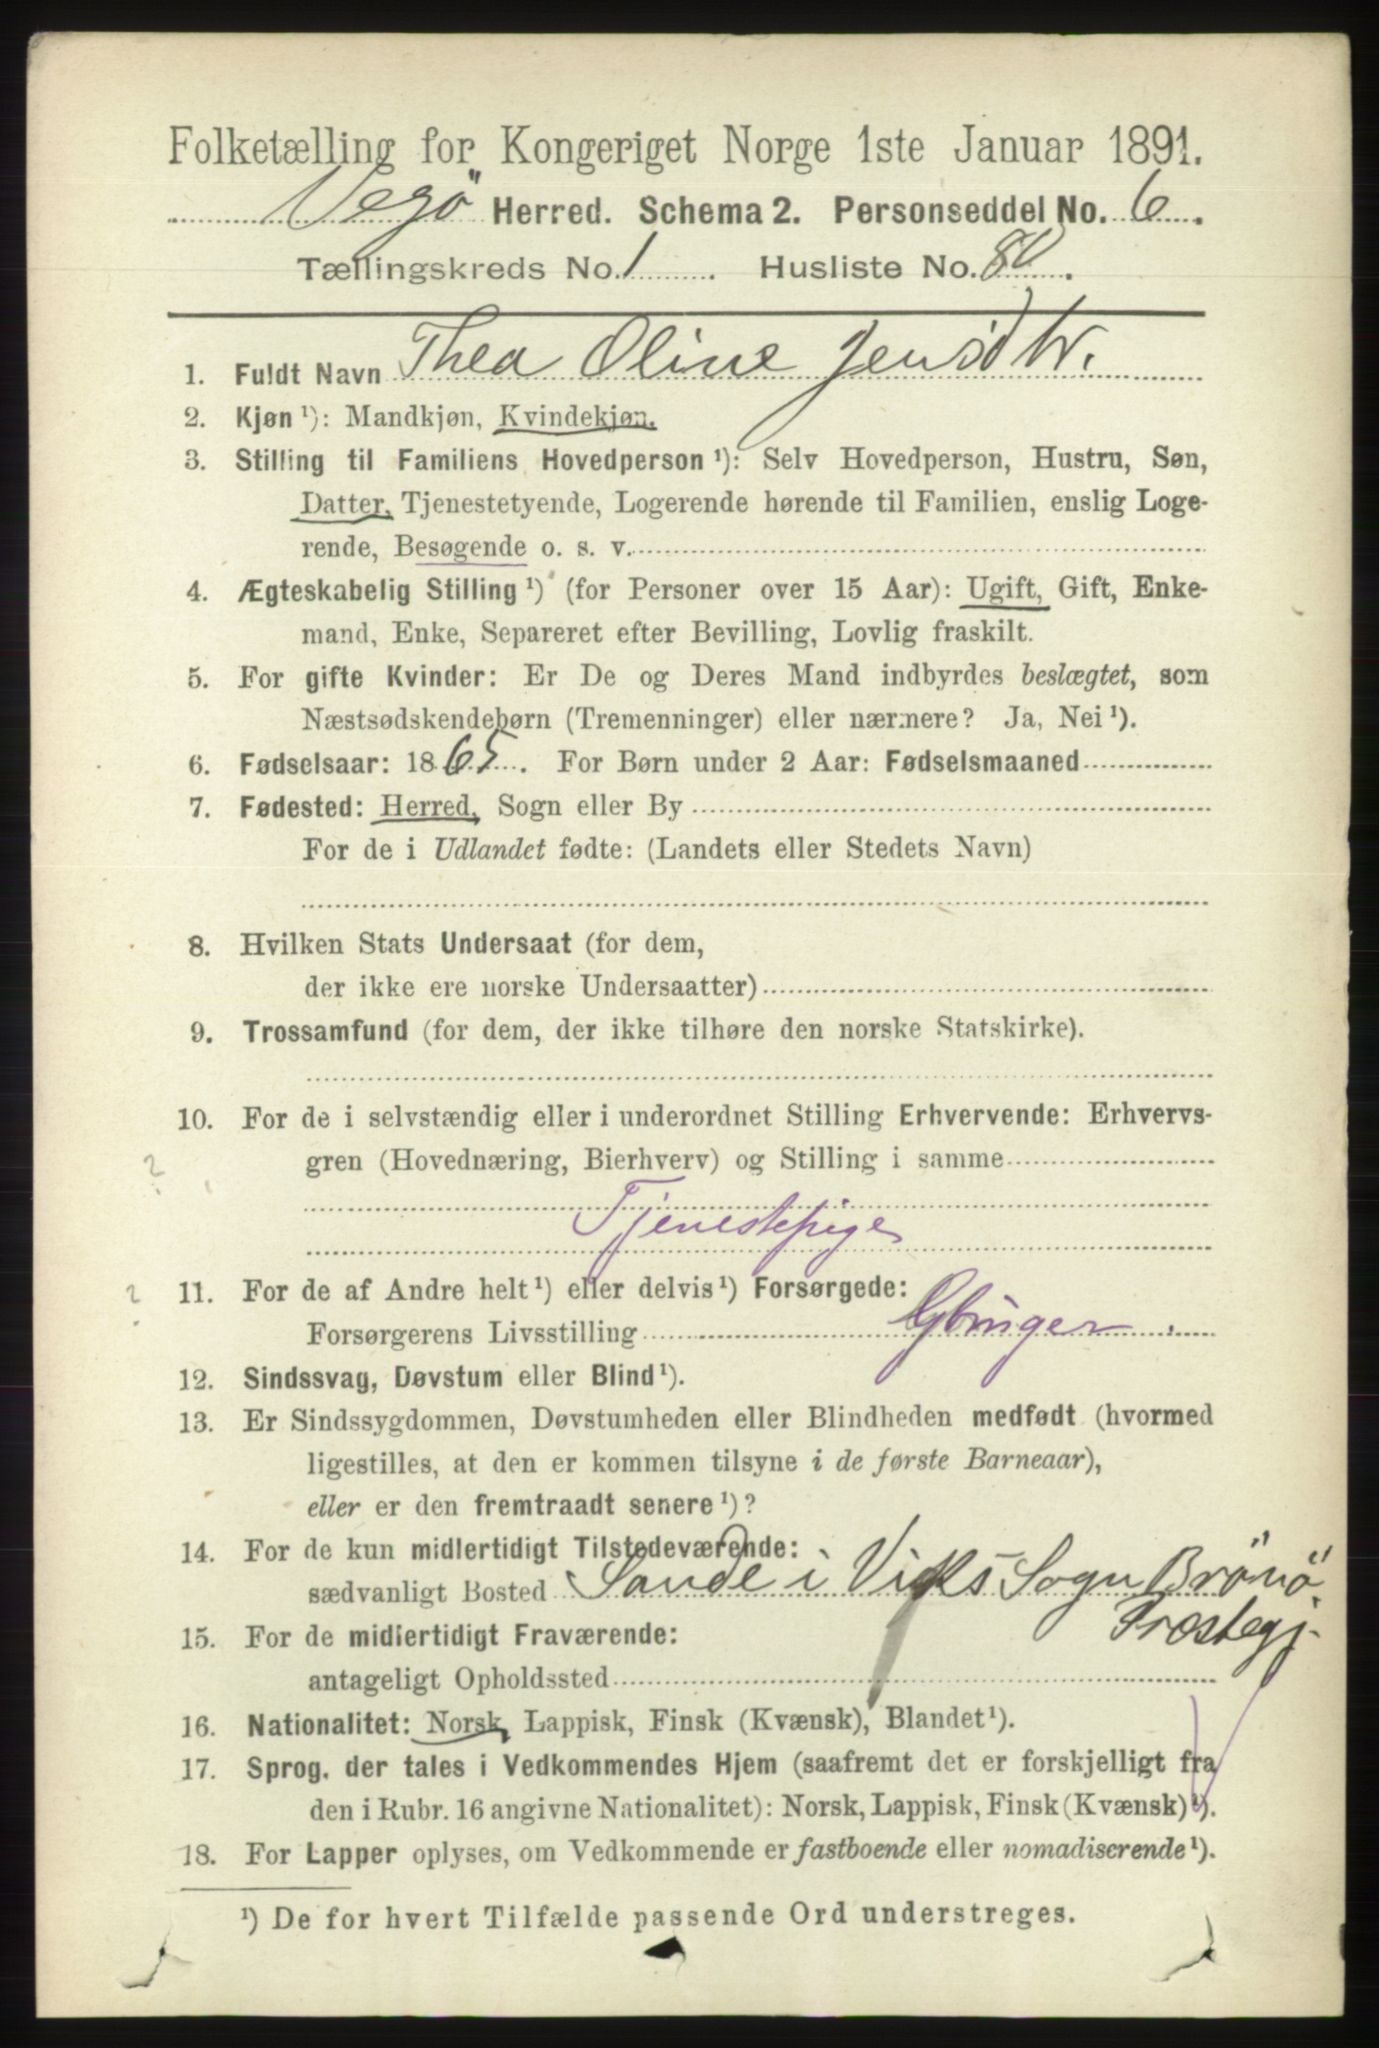 Folketælling for Kongeriget Norge 1ste Januar 1891.
Vegö Herred. Schema 2. Personseddel No. 6.
Tællingskreds No. 1. Husliste No. 80.
1. Fuldt Navn Thea Oline Jensdtr.
2. Kjøn ¹): Mandkjøn, Kvindekjøn.
3. Stilling til Familiens Hovedperson ¹): Selv Hovedperson, Hustru, Søn,
Datter, Tjenestetyende, Logerende hørende til Familien, enslig Loge-
rende, Besøgende o. s. v.
4. Ægteskabelig Stilling ¹) (for Personer over 15 Aar): Ugift, Gift, Enke-
mand, Enke, Separeret efter Bevilling, Lovlig fraskilt.
5. For gifte Kvinder: Er De og Deres Mand indbyrdes beslægtet, som
Næstsødskendebørn (Tremenninger) eller nærmere? Ja, Nei ¹).
6. Fødselsaar: 1865. For Børn under 2 Aar: Fødselsmaaned
7. Fødested: Herred, Sogn eller By
For de i Udlandet fødte: (Landets eller Stedets Navn)
8. Hvilken Stats Undersaat (for dem,
der ikke ere norske Undersaatter)
9. Trossamfund (for dem, der ikke tilhøre den norske Statskirke).
10. For de i selvstændig eller i underordnet Stilling Erhvervende: Erhvervs-
2 gren (Hovednæring, Bierhverv) og Stilling i samme
Tjenestepige
2 11. For de af Andre helt ¹) eller delvis ¹) Forsørgede:
Forsørgerens Livsstilling
12. Sindssvag, Døvstum eller Blind ¹).
13. Er Sindssygdommen, Døvstumheden eller Blindheden medfødt (hvormed
ligestilles, at den er kommen tilsyne i de første Barneaar),
eller er den fremtraadt senere ¹)?
14. For de kun midlertidigt Tilstedeværende:
sædvanligt Bosted Sande i Viks Sogn Brönö
Præstegj.
15. For de midlertidigt Fraværende:
antageligt Opholdssted
16. Nationalitet: Norsk, Lappisk, Finsk (Kvænsk), Blandet ¹).
17. Sprog, der tales i Vedkommendes Hjem (saafremt det er forskjelligt fra
den i Rubr. 16 angivne Nationalitet): Norsk, Lappisk, Finsk (Kvænsk) ¹).
18. For Lapper oplyses, om Vedkommende er fastboende eller nomadiserende ¹).
¹) De for hvert Tilfælde passende Ord understreges.